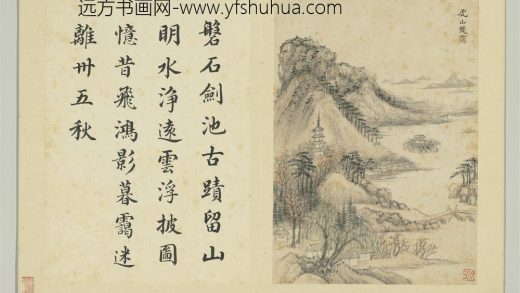 远方书画网-www.yfshuhua.com
磐石劍池古蹟留山
明水淨遠雲浮披圖
憶昔飛鴻影暮靄迷
離卅五秋